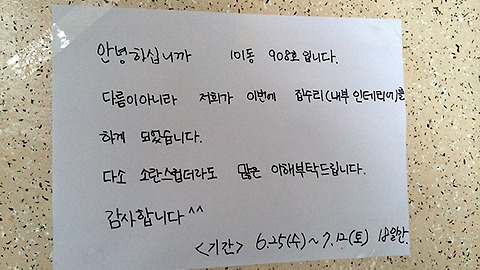 안녕하십니까 101동 908호 입니다.
다름이아니라 저희가 이번에 집수리(내부 인테리어)를
하게 되었습니다.
다소 소란스럽더라도 많은 이해부탁드립니다.
감사합니다^^
<기간> 6.25(수)~7.12(토) 18일간.